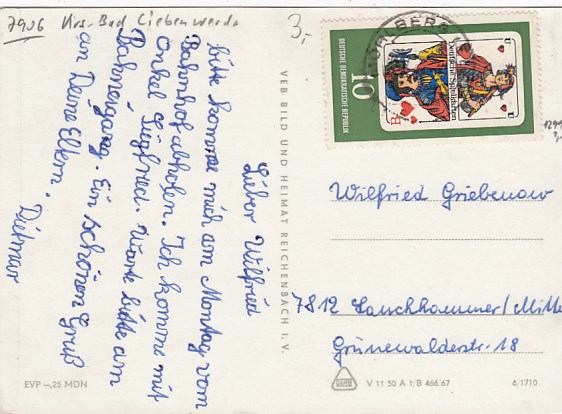 7906 Krs. Bad Liebenwerda
3,-
Lieber Wilfried
bitte komme mich am Montag vom
Bahnhof abholen. Ich komme mit
Onkel Siegfried. Warte bitte am
Bahneingang. Ein schönen Gruß
an Deine Eltern.
Dietmar
VEB BILD UND HEIMAT REICHENBACH I. V.
DEUTSCHE DEMOKRATISCHE REPUBLIK
10
Deutsche Spielkarten
B
U
U
Wilfried Griebenow
7812 Lauchhammer/Mitte
Grünewalderstr. 18
EVP –,25 MDN
V 11 50 A 1/B 466/67
6.1710